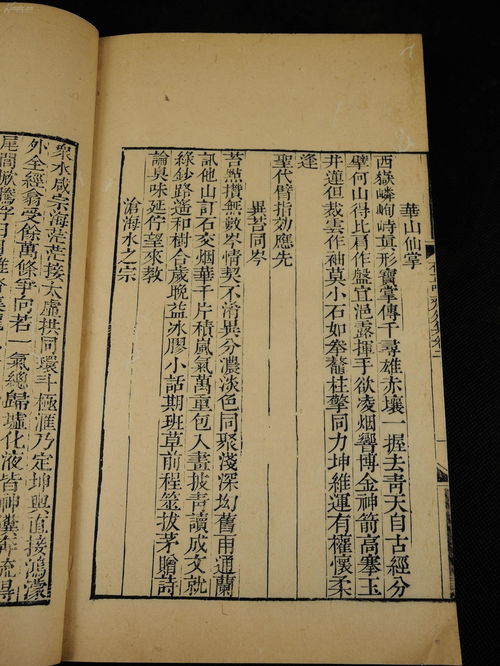 華山仙掌
西嶽嶙峋峙真形寶掌傳千尋雄赤壤一握去青天自古經分
擘何山得比肩作盤宜浥露揮手欲凌烟響博金神箭高搴玉
井蓮但裁雲作袖莫小石如拳鼇柱擎同力坤維運有權懷柔
逢
聖代臂指効應先
異苔同岑
苔點攢無數岑情契不淆異分濃淡色同聚淺深坳舊雨通蘭
訊他山訂石交烟華千片積嵐氣萬重包入畫披青讀成文就
綠鈔路遙和樹合歲晚益冰膠小話期班草前程筮拔茅贈詩
論臭味延佇望來教
滄海水之宗
衆水咸宗海茫茫接太虛拱同環斗極滙乃定坤輿直接鴻濛
外全經翕受餘萬條爭向若一氣總歸墟化液皆神瀵奔流得
尾閭